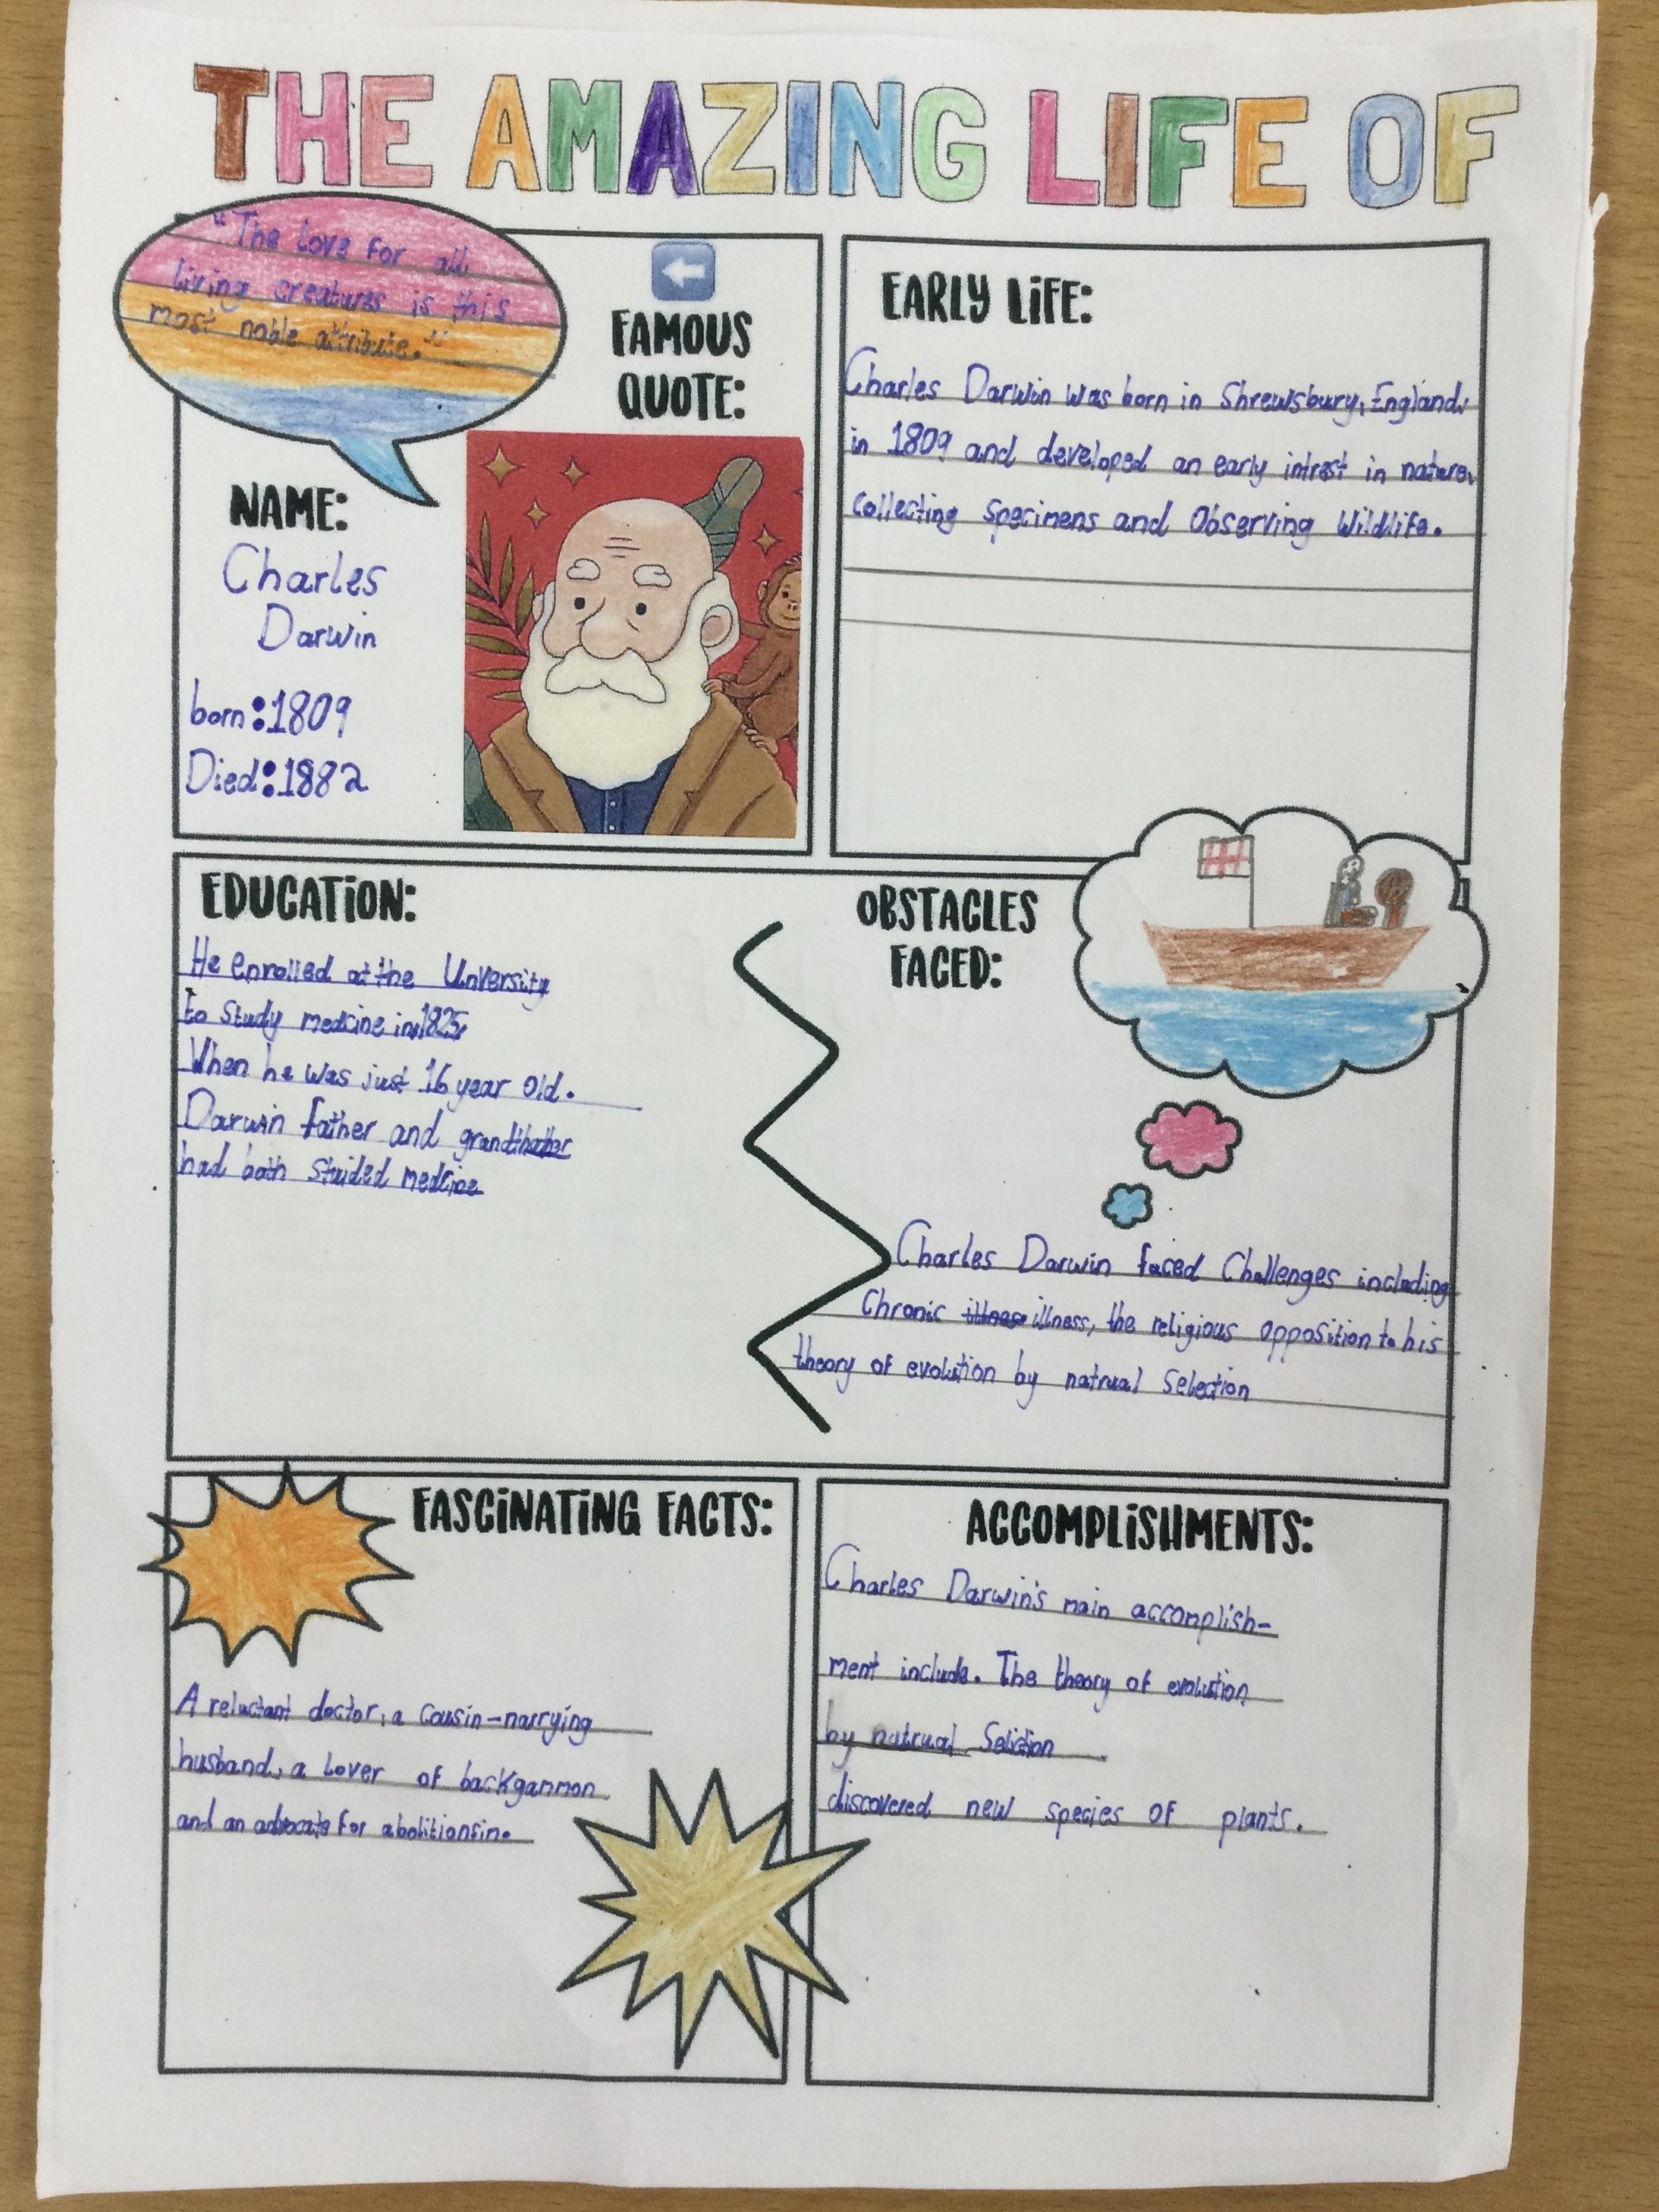 THE AMAZING LIFE OF
"The Love for all
living creatures is this
most noble attribute."
FAMOUS
QUOTE:
NAME:
Charles
Darwin
born:1809
Died:1882
EARLY LiFE:
Charles Darwin was born in Shrewsbury, England,
in 1809 and developed an early intrest in nature,
Collecting Specimens and Observing Wildlife.
EDUCATiON:
He enrolled at the Unversity
to Study medcine in 1825,
When he was just 16 year old.
Darwin father and grandthather
had both Stuided medcine
OBSTACLES
FACED:
Charles Darwin faced Challenges including
Chronic illness, the religious opposition to his
theory of evolution by natrual Selection
FASCiNATiNG FACTS:
A reluctant doctor, a Cousin-marrying
husband, a Lover of backgammon
and an advocate for abolitionsim.
ACCOMPLiSHMENTS:
Charles Darwin's main accomplish-
ment include. The theory of evolution
by natrual Seliction
discovered new species of plants.